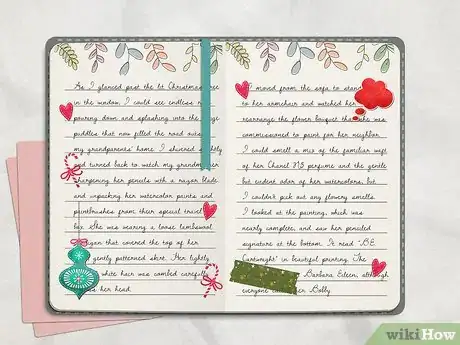 As I glanced past the lit Christmas
in the window, I could see endless
pouring down and splashing into the
puddles that now filled the road
my grandparents' home. I shivered
and turned back to watch my
sharpening her pencils with a razor blade
and unpacking her watercolor paints and
paintbrushes from their special travel
box. She was wearing a loose lambswool
that covered the top of her
gently patterned skirt. Her lightly
white hair was combed carefully
her head.
I moved from the sofa to stand
to her armchair and watched her
rearrange the flower bouquet that she was
commissioned to paint for her neighbor.
I could smell a mix of the familiar waft
of her Chanel №5 perfume and the gentle
but evident odor of her watercolors, but
I couldn't pick out any flowery smells.
I looked at the painting, which was
nearly complete, and saw her penciled
signature at the bottom. It read "B.E.
Cartwright" in beautiful printing. The
Barbara Eileen, although
everyone her Bolly
wikiHow